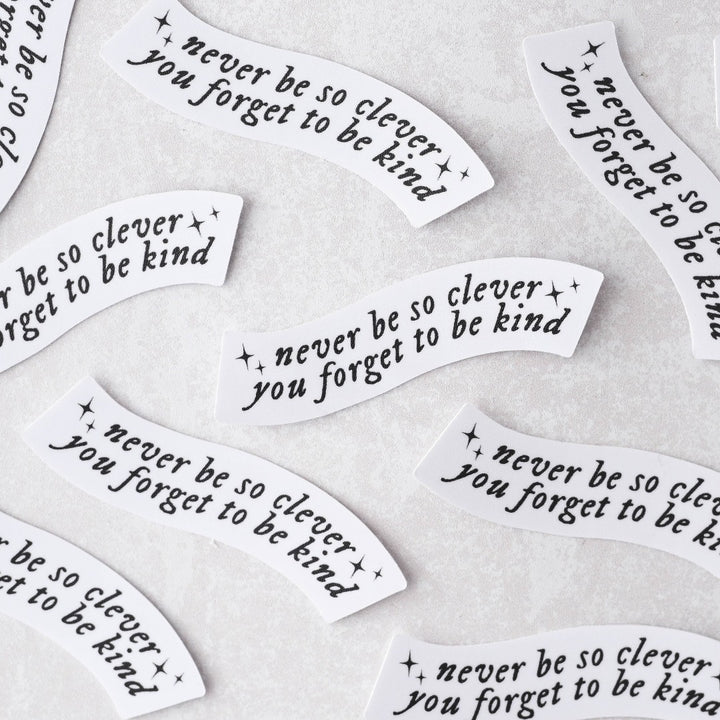 be so
forget
never be so clever
you forget to be kind
never be so
you forget to be kind
be so clever
to be kind
never be so clever
you forget to be kind
never be so clever
you forget to be kind
never be so
you forget to be
be so clever
to be kind
never be so clever
you forget to be kind